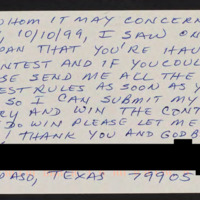 WHOM IT MAY CONCERN
10/10/99, I SAW ON
THAT YOU'RE HAV
NTEST AND IF YOU COUL
SE SEND ME ALL THE
EST RULES AS SOON AS Y
SO I CAN SUBMIT MY
RY AND WIN THE CONT
DO WIN PLEASE LET ME
! THANK YOU AND GOD B
PASO, TEXAS 79905